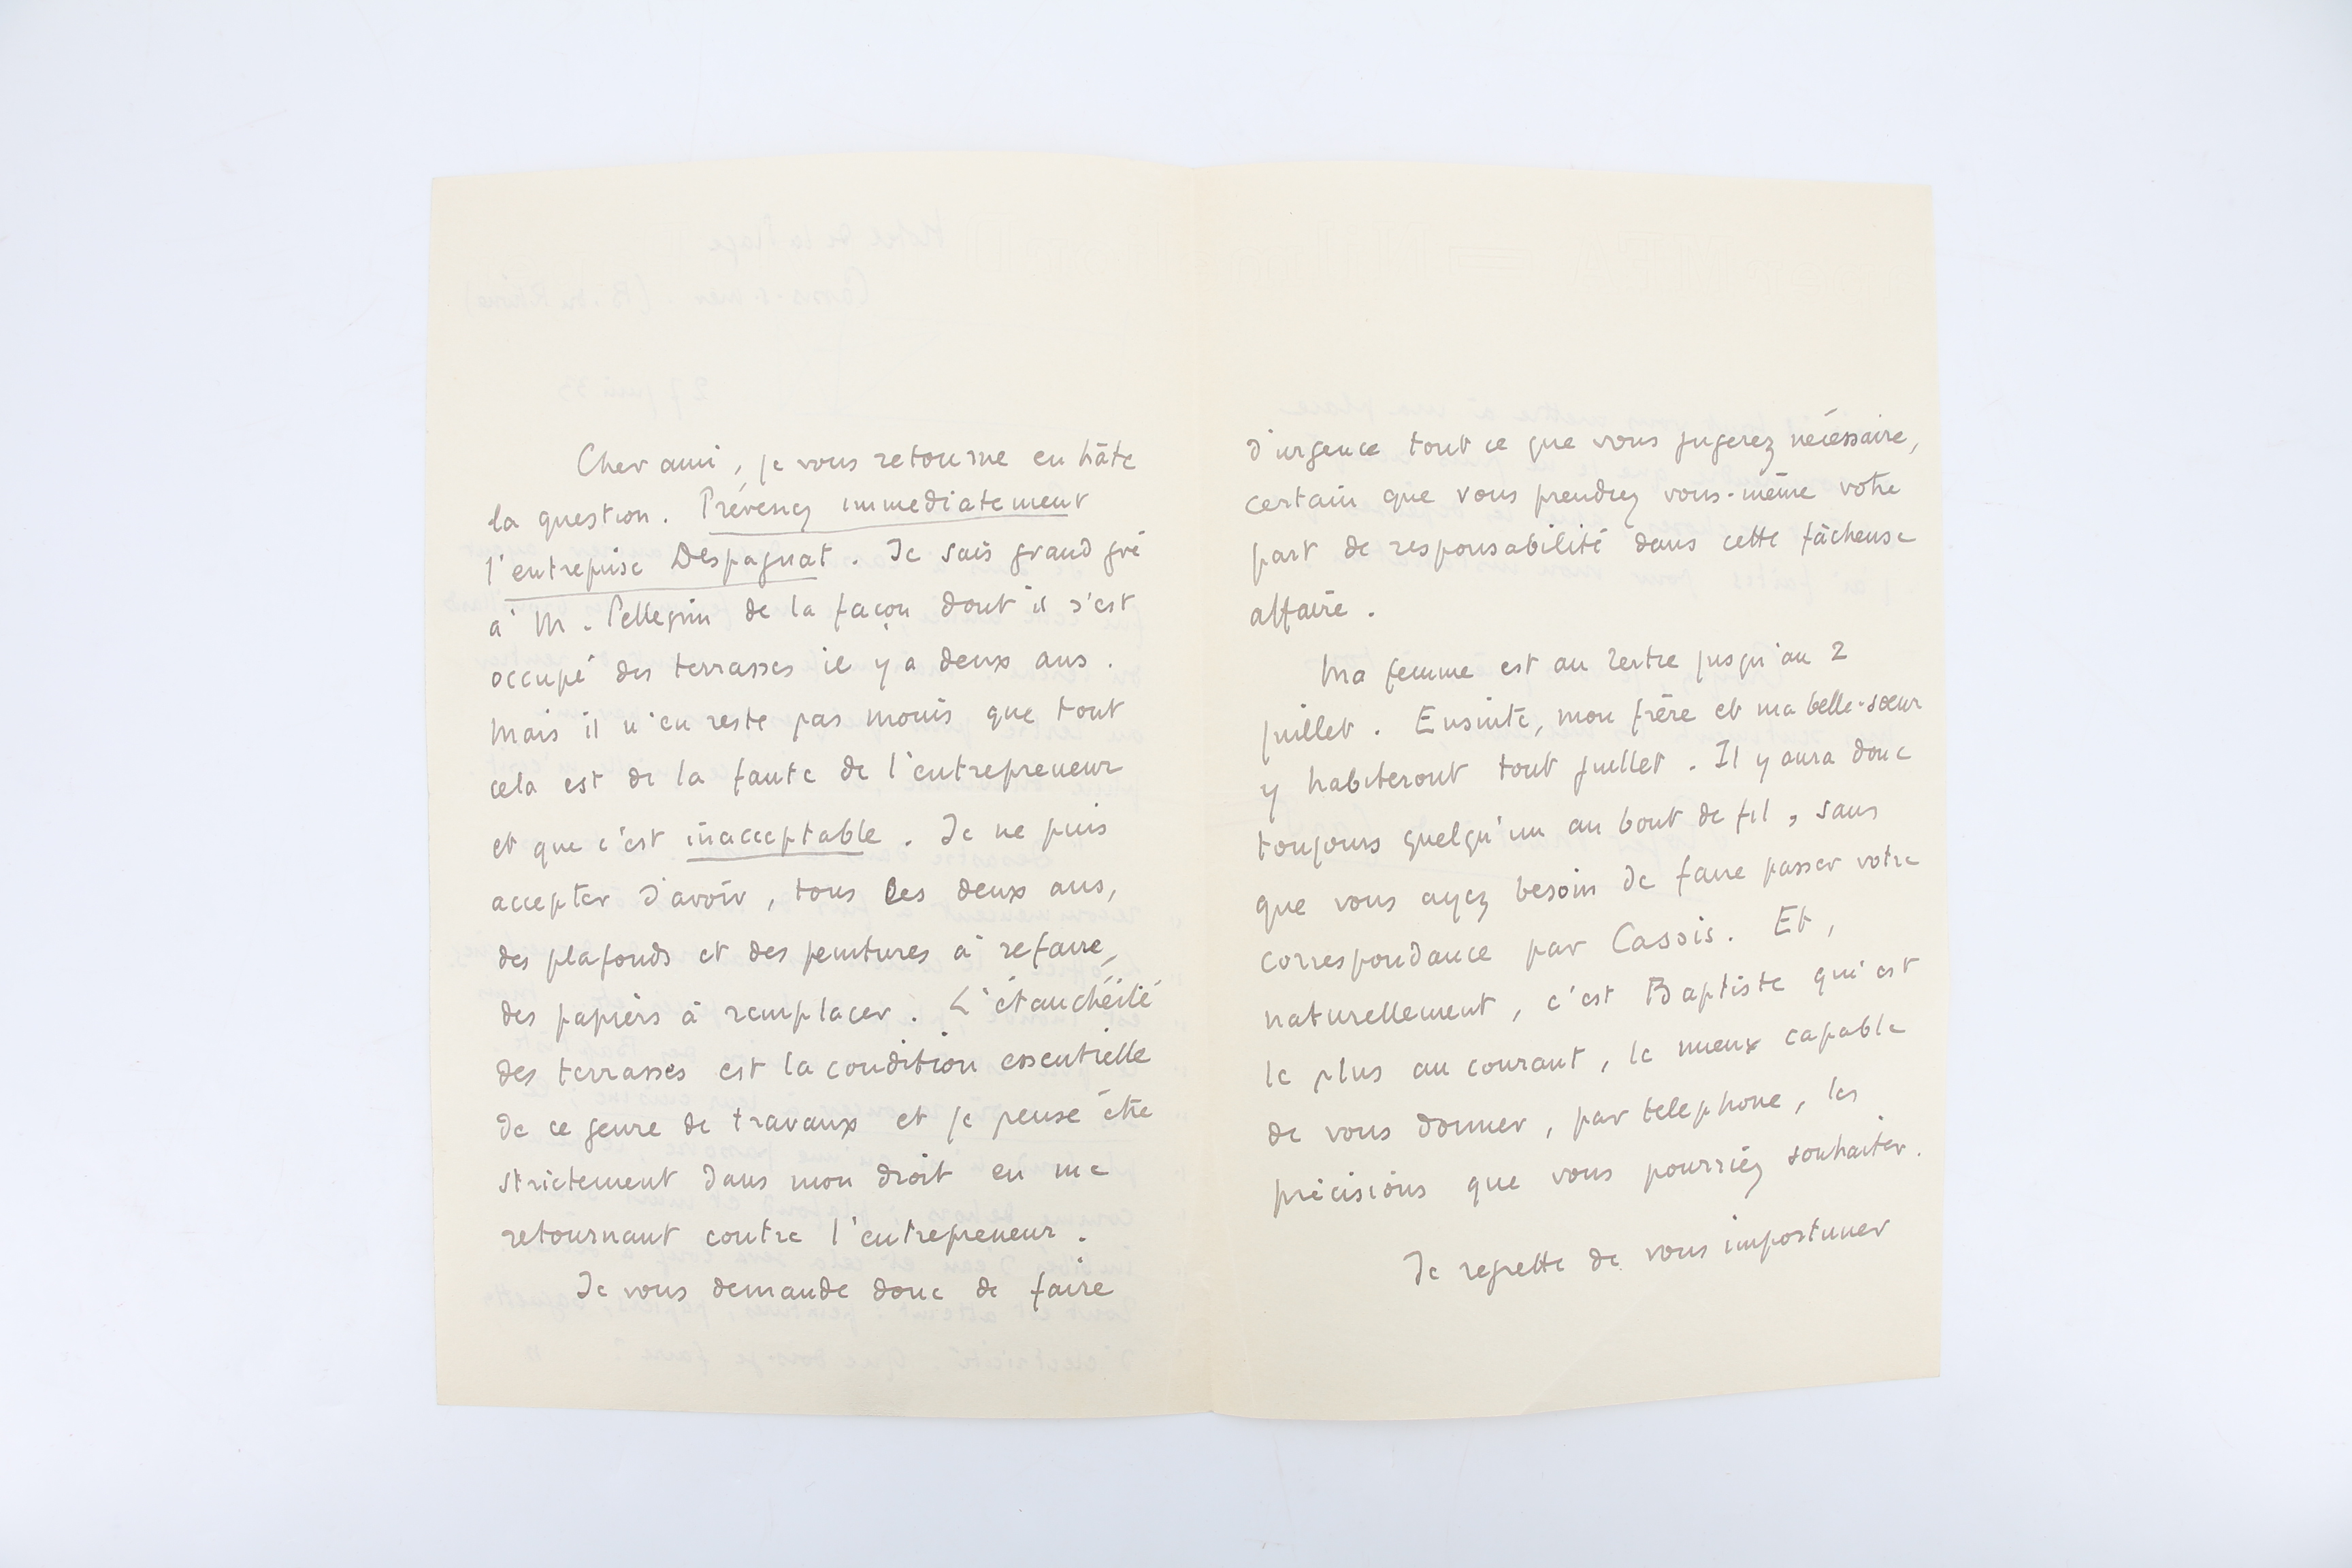 Cher ami, je vous retourne en hâte
la question. Prévenez immediatement
l'entreprise Despagnat. Je sais grand gré
à M. Pellegrin de la façon dont il s'est
occupé des terrasses il y a deux ans.
Mais il n'en reste pas moins que tout
cela est de la faute de l'entrepreneur
et que c'est inacceptable. Je ne puis
accepter d'avoir, tous les deux ans,
des plafonds et des peintures à refaire,
des papiers à remplacer. L'étanchéité
des terrasses est la condition essentielle
de ce genre de travaux et je pense être
strictement dans mon droit en me
retournant contre l'entrepreneur.
Je vous demande donc de faire
d'urgence tout ce que vous jugerez nécessaire,
certain que vous prendrez vous-même votre
part de responsabilité dans cette fâcheuse
affaire.
Ma femme est au Tertre jusqu'au 2
juillet. Ensuite, mon frère et ma belle-sœur
y habiteront tout juillet. Il y aura donc
toujours quelqu'un au bout de fil, sans
que vous ayez besoin de faire passer votre
correspondance par Cassis. Et,
naturellement, c'est Baptiste qui est
le plus au courant, le mieux capable
de vous donner, par telephone, les
précisions que vous pourriez souhaiter.
Je regrette de vous importuner